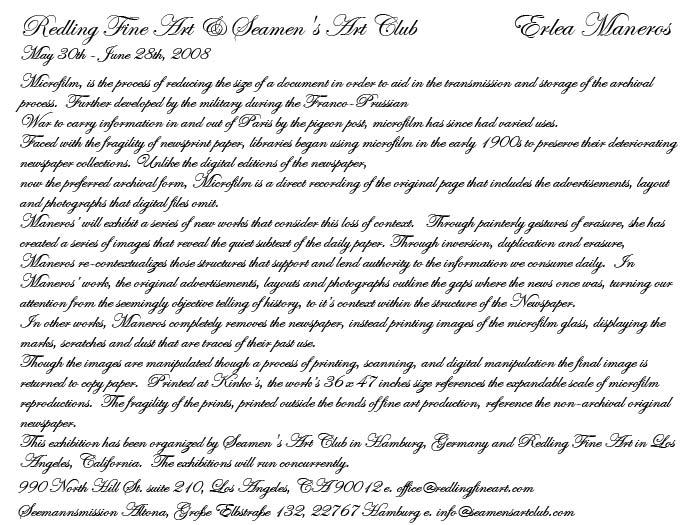 Redling Fine Art & Seamen's Art Club Erlea Maneros
May 30th - June 28th, 2008
Microfilm, is the process of reducing the size of a document in order to aid in the transmission and storage of the archival
process. Further developed by the military during the Franco-Prussian
War to carry information in and out of Paris by the pigeon post, microfilm has since had varied uses.
Faced with the fragility of newsprint paper, libraries began using microfilm in the early 1900s to preserve their deteriorating
newspaper collections. Unlike the digital editions of the newspaper,
now the preferred archival form, Microfilm is a direct recording of the original page that includes the advertisements, layout
and photographs that digital files omit.
Maneros' will exhibit a series of new works that consider this loss of context. Through painterly gestures of erasure, she has
created a series of images that reveal the quiet subtext of the daily paper. Through inversion, duplication and erasure,
Maneros re-contextualizes those structures that support and lend authority to the information we consume daily. In
Maneros' work, the original advertisements, layouts and photographs outline the gaps where the news once was, turning our
attention from the seemingly objective telling of history, to it's context within the structure of the Newspaper.
In other works, Maneros completely removes the newspaper, instead printing images of the microfilm glass, displaying the
marks, scratches and dust that are traces of their past use.
Though the images are manipulated though a process of printing, scanning, and digital manipulation the final image is
returned to copy paper. Printed at Kinko's, the work's 36 x 47 inches size references the expandable scale of microfilm
reproductions. The fragility of the prints, printed outside the bonds of fine art production, reference the non-archival original
newspaper.
This exhibition has been organized by Seamen's Art Club in Hamburg, Germany and Redling Fine Art in Los
Angeles, California. The exhibitions will run concurrently.
990 North Hill St. suite 210, Los Angeles, CA 90012 e. office@redlingfineart.com
Seemannsmission Altona, Große Elbstraße 132, 22767 Hamburg e. info@seamensartclub.com